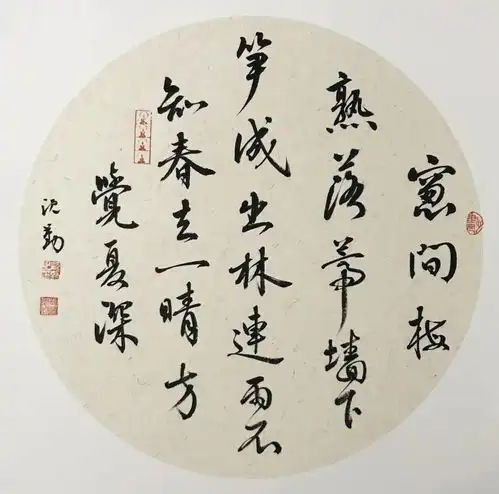 窓間梅
熟落蒂墙下
笋成出林連雨不
知春去一晴方
覺夏深
沈勤